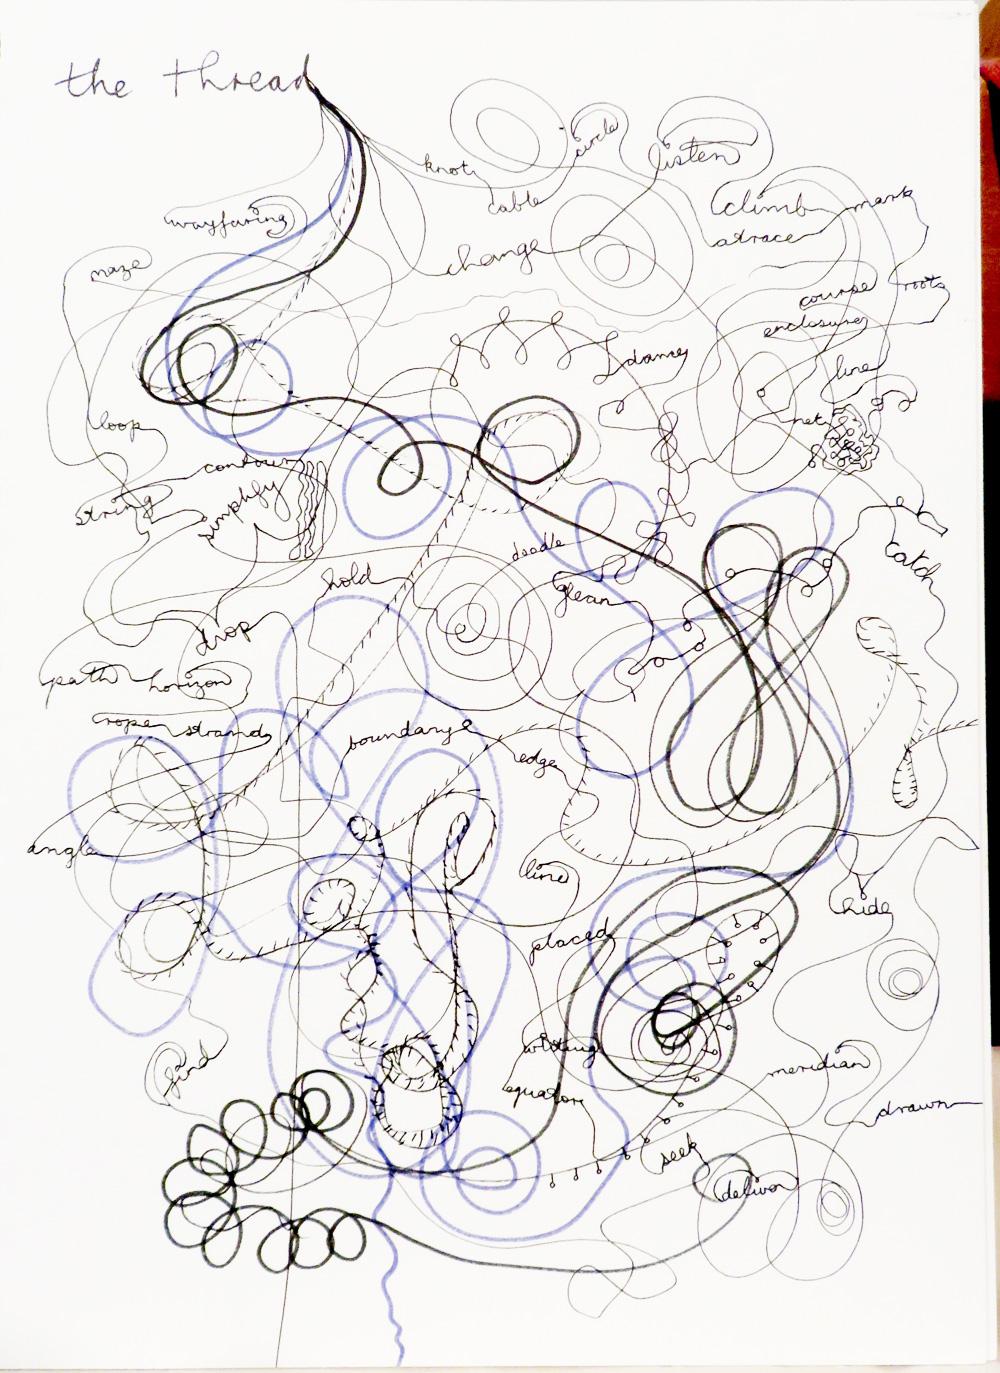 the thread
knot
circle
listen
cable
wayfaring
climb
mark
a trace
change
maze
course
roots
enclosure
dance
line
loop
net
contour
string
simplify
doodle
catch
hold
glean
drop
path
horizon
rope
strand
boundary
edge
line
hide
placed
writing
find
meridian
equator
drawn
seek
deliver